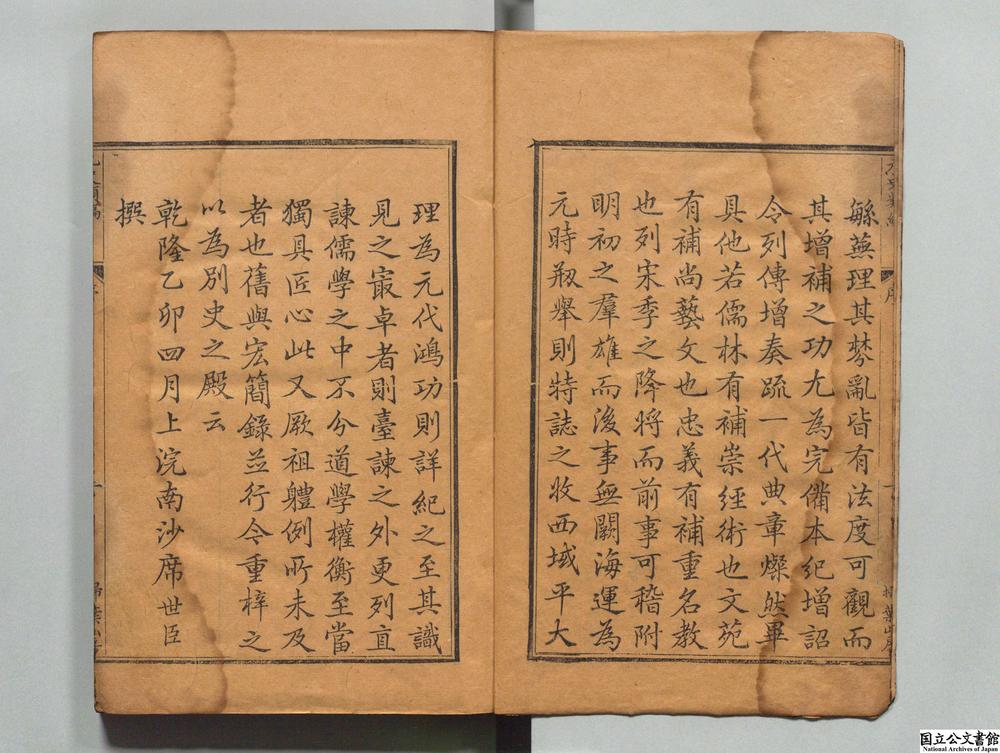 緐蕪理其棼亂皆有法度可觀而
其增補之功尤為完備本紀增詔
令列傳增奏疏一代典章燦然畢
具他若儒林有補崇經術也文苑
有補尚藝文也忠義有補重名教
也列宋季之降將而前事可稽附
明初之羣雄而後事無闕海運為
元時刱舉則特誌之收西域平大
理為元代鴻功則詳紀之至其識
見之㝡卓者則臺諫之外更列直
諫儒學之中不分道學權衡至當
獨具匠心此又厥祖軆例所未及
者也舊與宏簡錄並行今重梓之
以為別史之殿云
乾隆乙卯四月上浣南沙席世臣
撰
序
掃葉山房
国立公文書館
National Archives of Japan